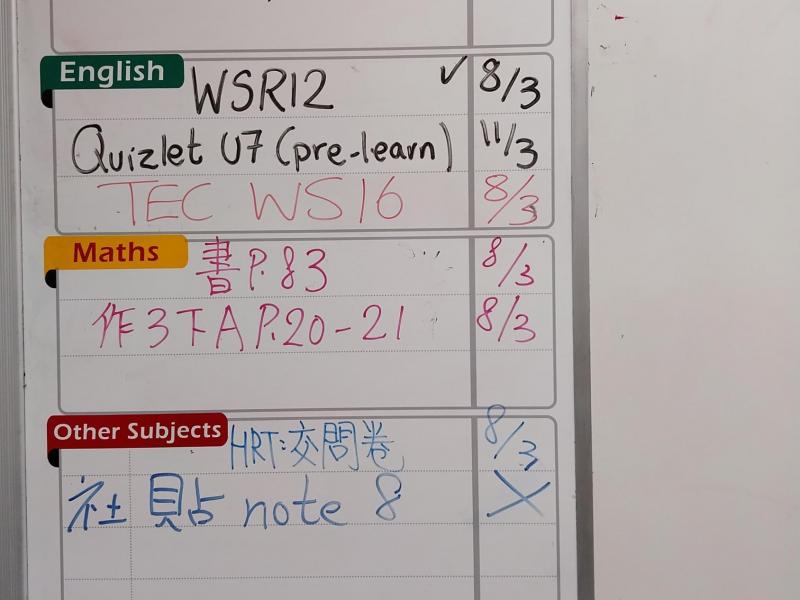 English
WSR12 ✓ 8/3
Quizlet U7 (pre-learn) 11/3
TEC WS16 8/3
Maths
書P.83 8/3
作3下A P.20-21 8/3
Other Subjects
HRT:交問卷 8/3
社 貼 note 8 X